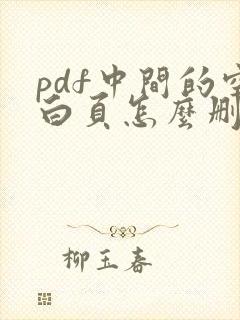 pdf中間的空
白頁怎麼刪
柳玉春